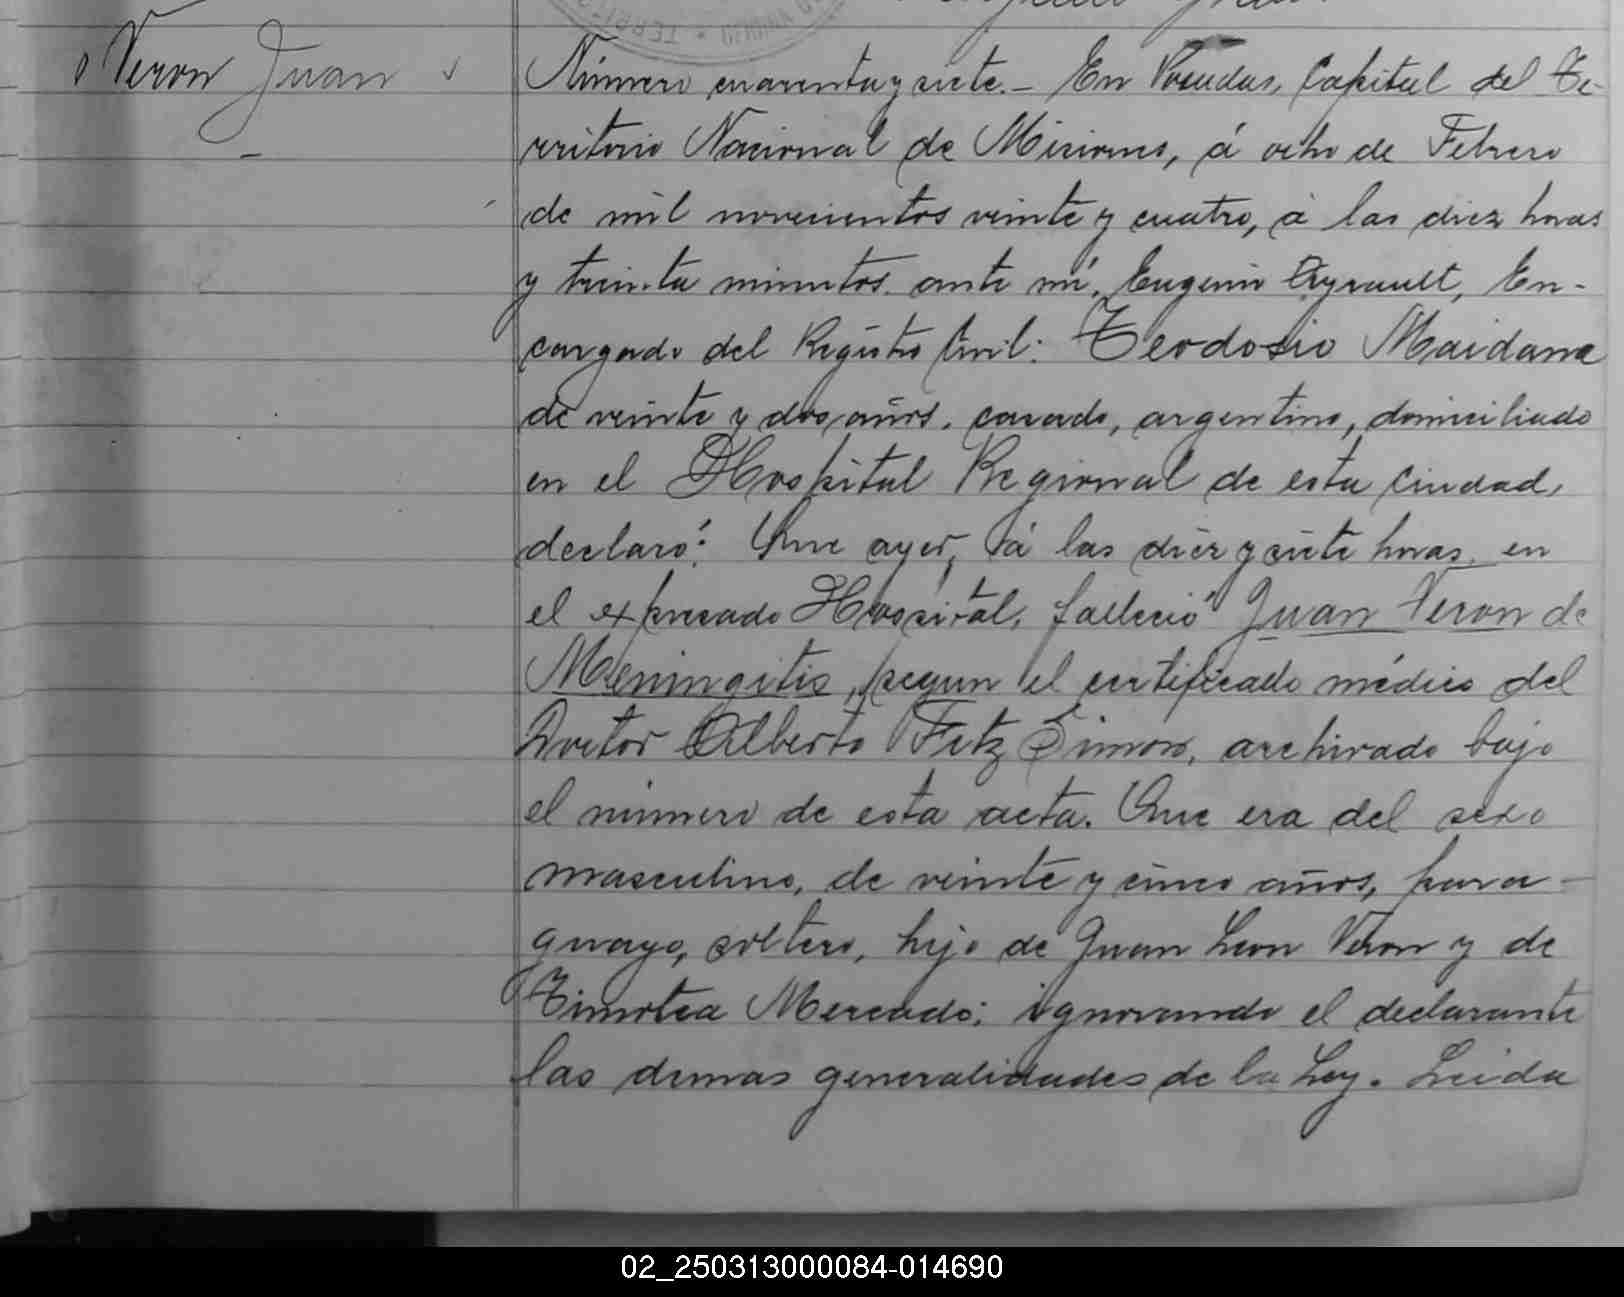 Veron Juan
Número cuarenta y siete.- En Posadas, Capital del Te-
rritorio Nacional de Misiones, á ocho de Febrero
de mil novecientos veinte y cuatro, á las diez horas
y treinta minutos, ante mí, Eugenio Ayrault, En-
cargado del Registro Civil: Teodosio Maidana
de veinte y dos años, casado, argentino, domiciliado
en el Hospital Regional de esta ciudad,
declaró: Que ayer, á las diez y siete horas, en
el expresado Hospital, falleció Juan Veron de
Meningitis, segun el certificado médico del
Doctor Alberto Fitz Simon, archivado bajo
el número de esta acta. Que era del sexo
masculino, de veinte y cinco años, para-
guayo, soltero, hijo de Juan Leon Veron y de
Timotea Mercado; ignorando el declarante
las demas generalidades de la Ley. Leida
02_250313000084-014690